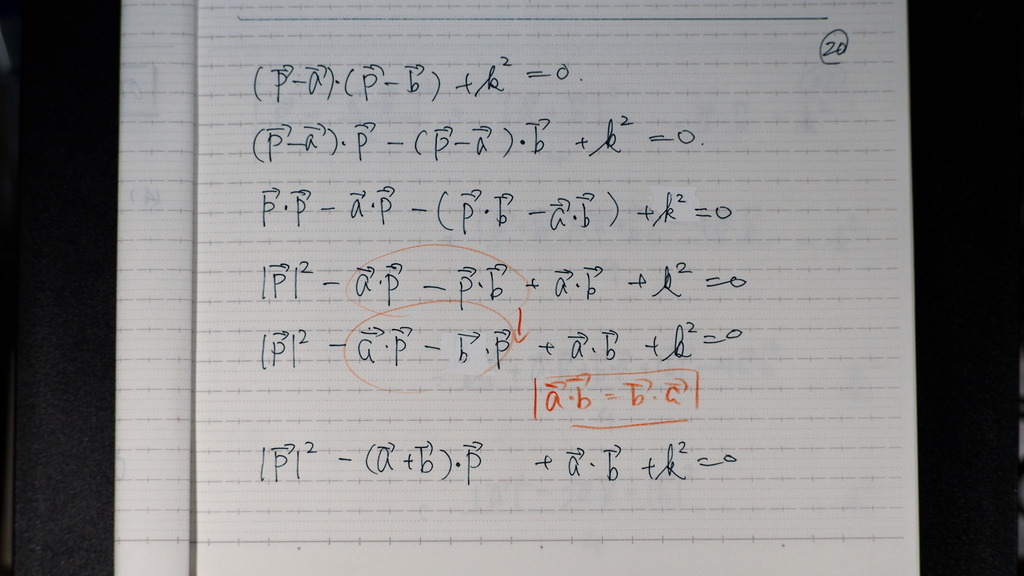 ⑳
(p⃗−a⃗)·(p⃗−b⃗) +k² =0.
(p⃗−a⃗)·p⃗ −(p⃗−a⃗)·b⃗ +k² =0.
p⃗·p⃗ − a⃗·p⃗ −(p⃗·b⃗ −a⃗·b⃗) +k² =0
|p⃗|² − a⃗·p⃗ − p⃗·b⃗ + a⃗·b⃗ +k² =0
|p⃗|² − a⃗·p⃗ − b⃗·p⃗ + a⃗·b⃗ +k² =0
a⃗·b⃗ = b⃗·a⃗
|p⃗|² −(a⃗+b⃗)·p⃗ + a⃗·b⃗ +k² =0